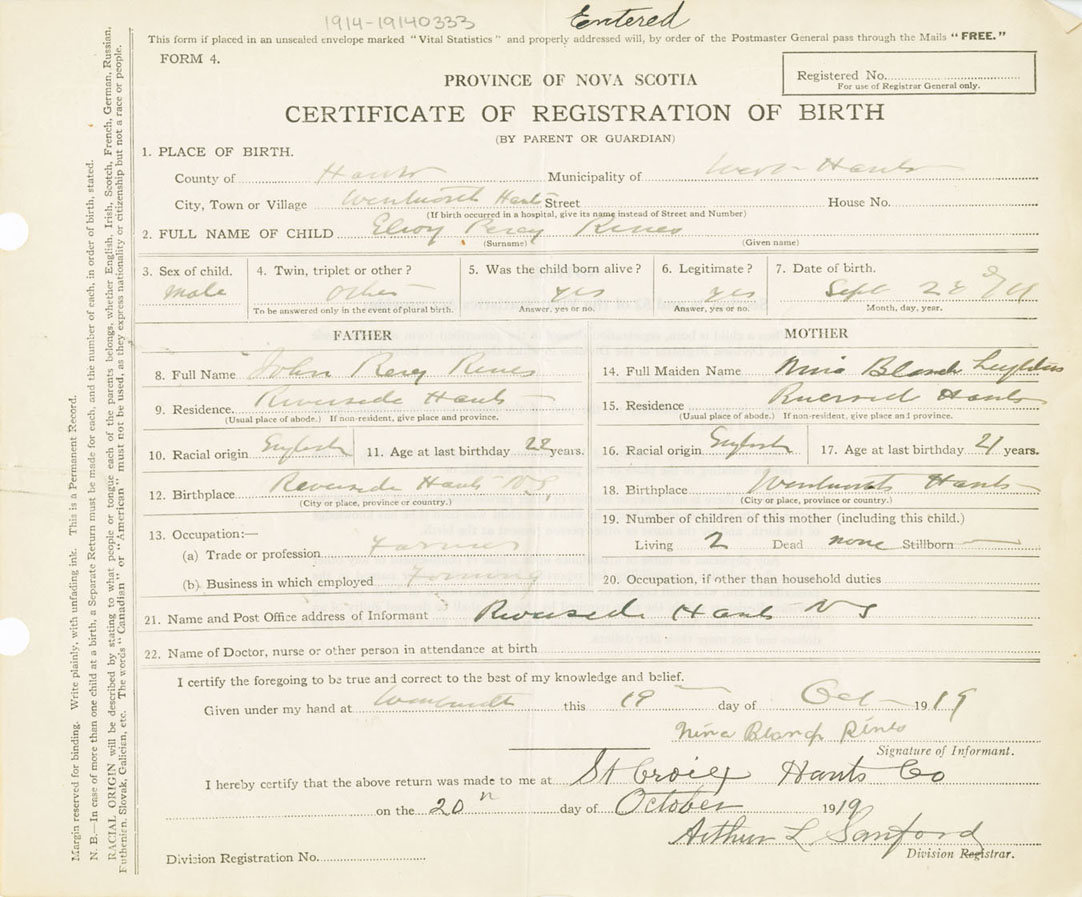 1914-19140333
Entered
This form if placed in an unsealed envelope marked "Vital Statistics" and properly addressed will, by order of the Postmaster General pass through the Mails "FREE."
FORM 4.
PROVINCE OF NOVA SCOTIA
Registered No.
For use of Registrar General only.
CERTIFICATE OF REGISTRATION OF BIRTH
(BY PARENT OR GUARDIAN)
1. PLACE OF BIRTH.
County of Hants Municipality of West Hants
City, Town or Village Wentworth Hants Street House No.
(If birth occurred in a hospital, give its name instead of Street and Number)
2. FULL NAME OF CHILD Elroy Percy Rines
(Surname) (Given name)
3. Sex of child. 4. Twin, triplet or other? 5. Was the child born alive? 6. Legitimate? 7. Date of birth.
Male Other yes yes Sept 28
To be answered only in the event of plural birth. Answer, yes or no. Answer, yes or no. Month, day, year.
FATHER MOTHER
8. Full Name John Percy Rines 14. Full Maiden Name Nina Blanch
9. Residence. Riverside Hants 15. Residence Riverside Hants
(Usual place of abode.) If non-resident, give place and province. (Usual place of abode.) If non-resident, give place and province.
10. Racial origin English 11. Age at last birthday 22 years. 16. Racial origin English 17. Age at last birthday 21 years.
12. Birthplace Riverside Hants N.S. 18. Birthplace Wentworth Hants
(City or place, province or country.) (City or place, province or country.)
13. Occupation:— 19. Number of children of this mother (including this child.)
(a) Trade or profession Farmer Living 2 Dead none Stillborn —
(b) Business in which employed Farming 20. Occupation, if other than household duties
21. Name and Post Office address of Informant Riverside Hants N S
22. Name of Doctor, nurse or other person in attendance at birth
I certify the foregoing to be true and correct to the best of my knowledge and belief.
Given under my hand at Wentworth this 19 day of Oct 1919
Nina Blanch Rines
Signature of Informant.
I hereby certify that the above return was made to me at St Croix Hants Co
on the 20th day of October 1919
Arthur L Sanford
Division Registrar.
Division Registration No.
Margin reserved for binding. Write plainly, with unfading ink. This is a Permanent Record.
N. B.—In case of more than one child at a birth, a Separate Return must be made for each, and the number of each, in order of birth, stated.
RACIAL ORIGIN will be described by stating to what people or tongue each of the parents belongs, whether English, Irish, Scotch, French, German, Russian,
Ruthenien, Slovak, Galician, etc. The words "Canadian" or "American" must not be used, as they express nationality or citizenship but not a race or people.